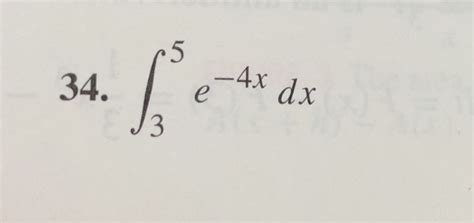 34. ∫₃⁵ e⁻⁴ˣ dx